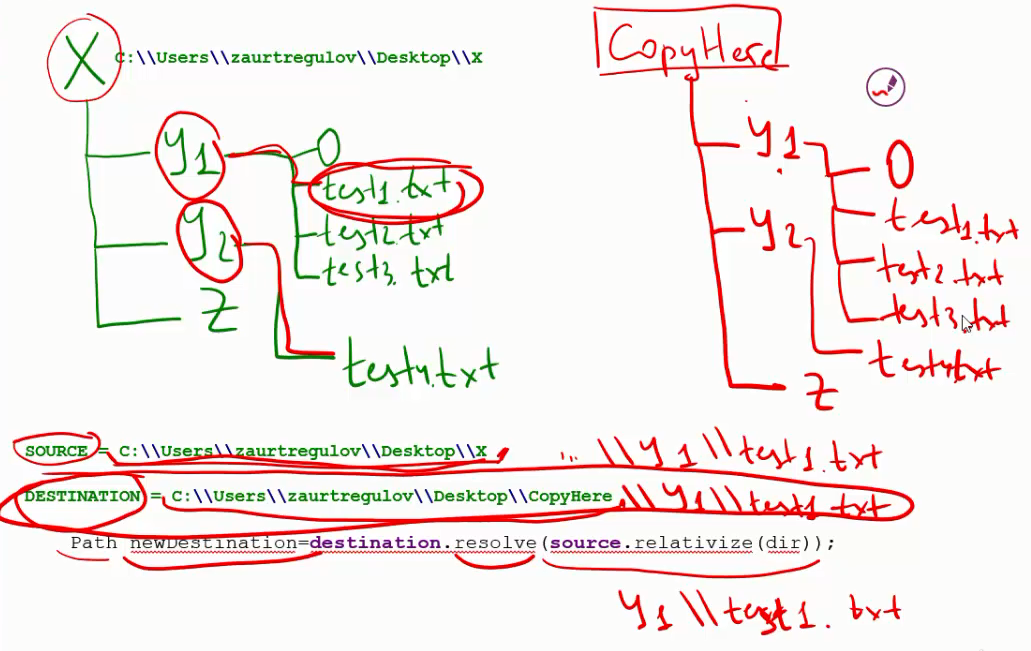 X C:\\Users\\zaurtregulov\\Desktop\\X
CopyHere
y1
O
test1.txt
test2.txt
test3.txt
y2
Z
test4.txt
y1
O
test1.txt
test2.txt
test3.txt
y2
test4.txt
Z
SOURCE = C:\\Users\\zaurtregulov\\Desktop\\X ... \\y1\\test1.txt
DESTINATION = C:\\Users\\zaurtregulov\\Desktop\\CopyHere \\y1\\test1.txt
Path newDestination=destination.resolve(source.relativize(dir));
y1\\test1.txt